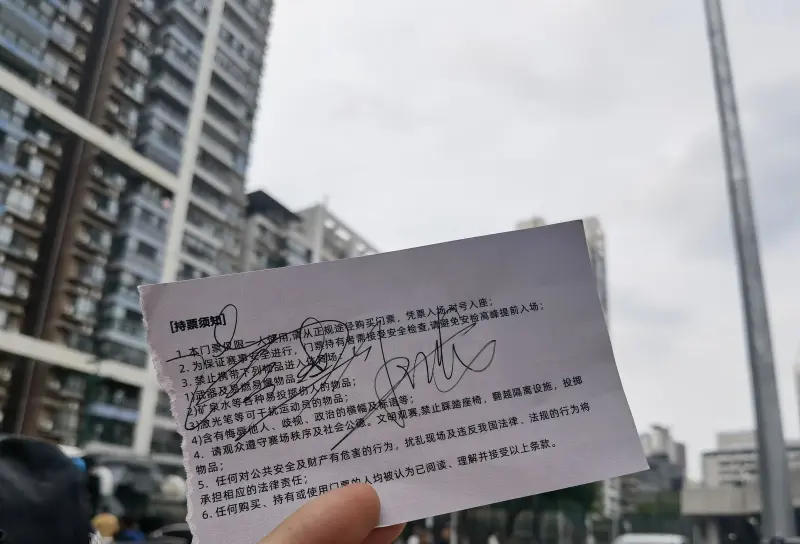 [持票须知]
1. 本门票仅限一人使用,请从正规途径购买门票，凭票入场,对号入座；
2. 为保证赛事安全进行，门票持有者需接受安全检查,请避免安检高峰提前入场；
3. 禁止携带下列物品进入比赛场：
1)武器及易燃易爆物品；
2)矿泉水等各种易投掷伤人的物品；
3)激光笔等可干扰运动员的物品；
4)含有侮辱他人、歧视、政治的横幅及标语等；
4. 请观众遵守赛场秩序及社会公德。文明观赛,禁止踩踏座椅，翻越隔离设施，投掷
物品；
5. 任何对公共安全及财产有危害的行为，扰乱现场及违反我国法律、法规的行为将
承担相应的法律责任；
6. 任何购买、持有或使用门票的人均被认为已阅读、理解并接受以上条款。